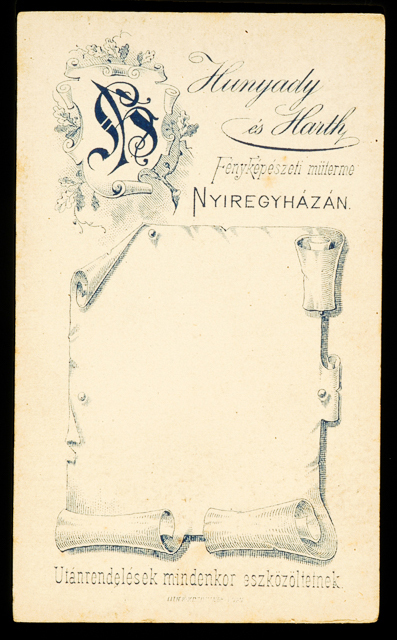 H
Hunyady
és Harth
Fényképészeti műterme
NYIREGYHÁZÁN.
Utánrendelések mindenkor eszközöltetnek.